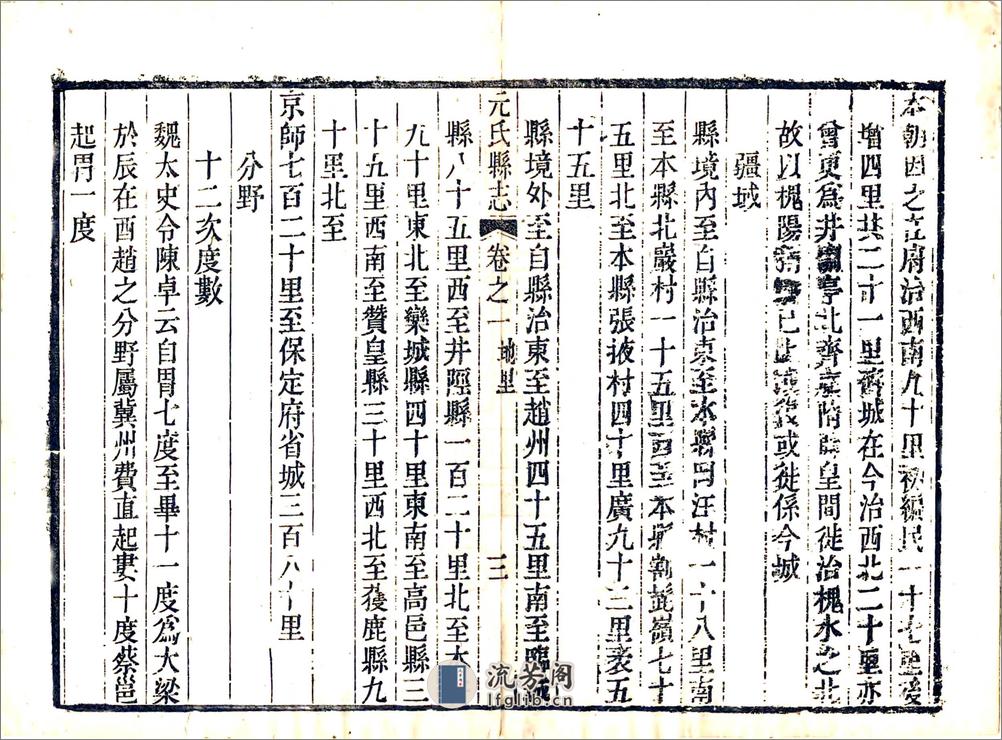 本朝因之在府治西南九十里初編民一十七里後
增四里共二十一里舊城在今治西北二十里亦
曾更為井陘亭北齊京隋開皇間徙治槐水之北
故以槐陽或徙係今城
疆域
縣境內至自縣治東至本縣因汪村一十八里南
至本縣北巖村一十五里西至本縣割髭嶺七十
五里北至本縣張掖村四十里廣九十三里袤五
十五里
縣境外至自縣治東至趙州四十五里南至臨城
縣八十五里西至井陘縣一百二十里北至本
元氏縣志 卷之一 地里 三
九十里東北至欒城縣四十里東南至高邑縣三
十五里西南至贊皇縣三十里西北至獲鹿縣九
十里北至
京師七百二十里至保定府省城三百八十里
分野
十二次度數
魏太史令陳卓云自胃七度至畢十一度為大梁
於辰在酉趙之分野屬冀州費直起婁十度蔡邕
起胃一度
流芳阁
lfglib.cn